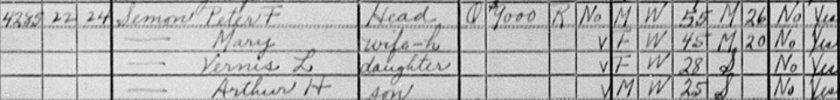 4285 22 24 Semon Peter F Head O $9000 R No M W 55 M 26 No Yes
— Mary wife-h v F W 45 M 20 No Yes
— Vernis L daughter v F W 28 S No Yes
— Arthur H son v M W 25 S No Yes